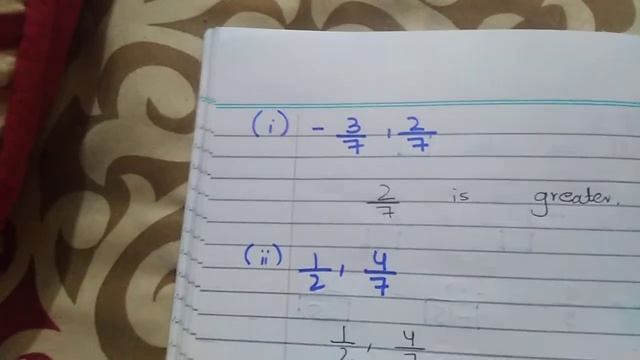 (i) - 3/7 , 2/7
2/7 is greater.
(ii) 1/2 , 4/7
1/2 , 4/7